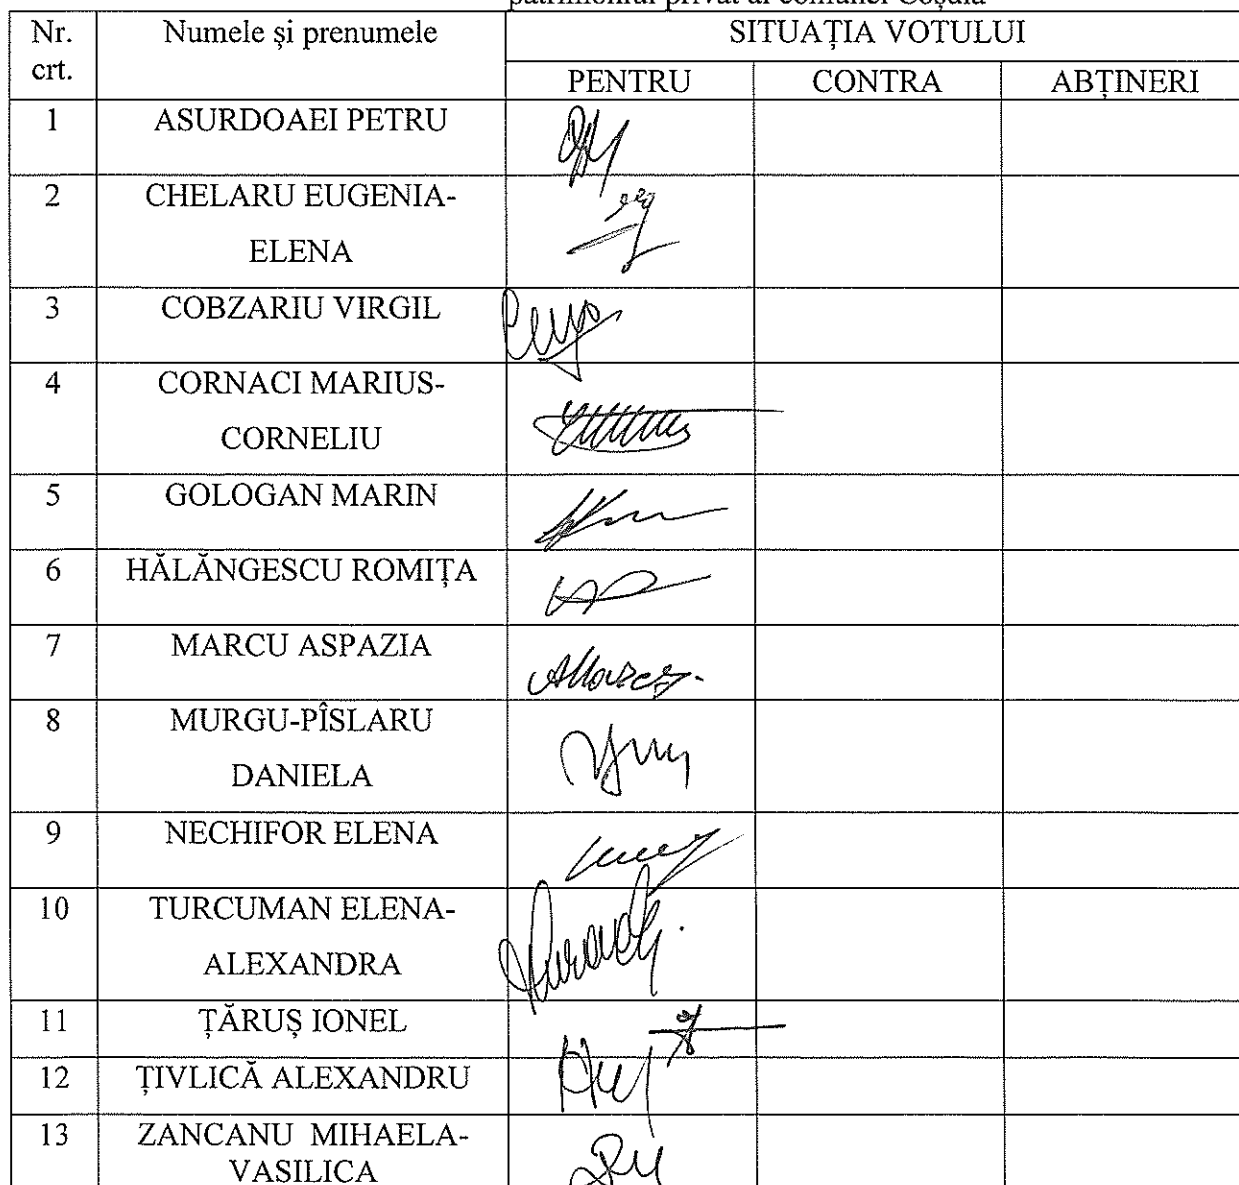 patrimoniul privat al comunei Coșula
Nr. crt. Numele și prenumele SITUAȚIA VOTULUI
PENTRU CONTRA ABȚINERI
1 ASURDOAEI PETRU
2 CHELARU EUGENIA-
ELENA
3 COBZARIU VIRGIL
4 CORNACI MARIUS-
CORNELIU
5 GOLOGAN MARIN
6 HĂLĂNGESCU ROMIȚA
7 MARCU ASPAZIA
8 MURGU-PÎSLARU
DANIELA
9 NECHIFOR ELENA
10 TURCUMAN ELENA-
ALEXANDRA
11 ȚĂRUȘ IONEL
12 ȚIVLICĂ ALEXANDRU
13 ZANCANU MIHAELA-
VASILICA